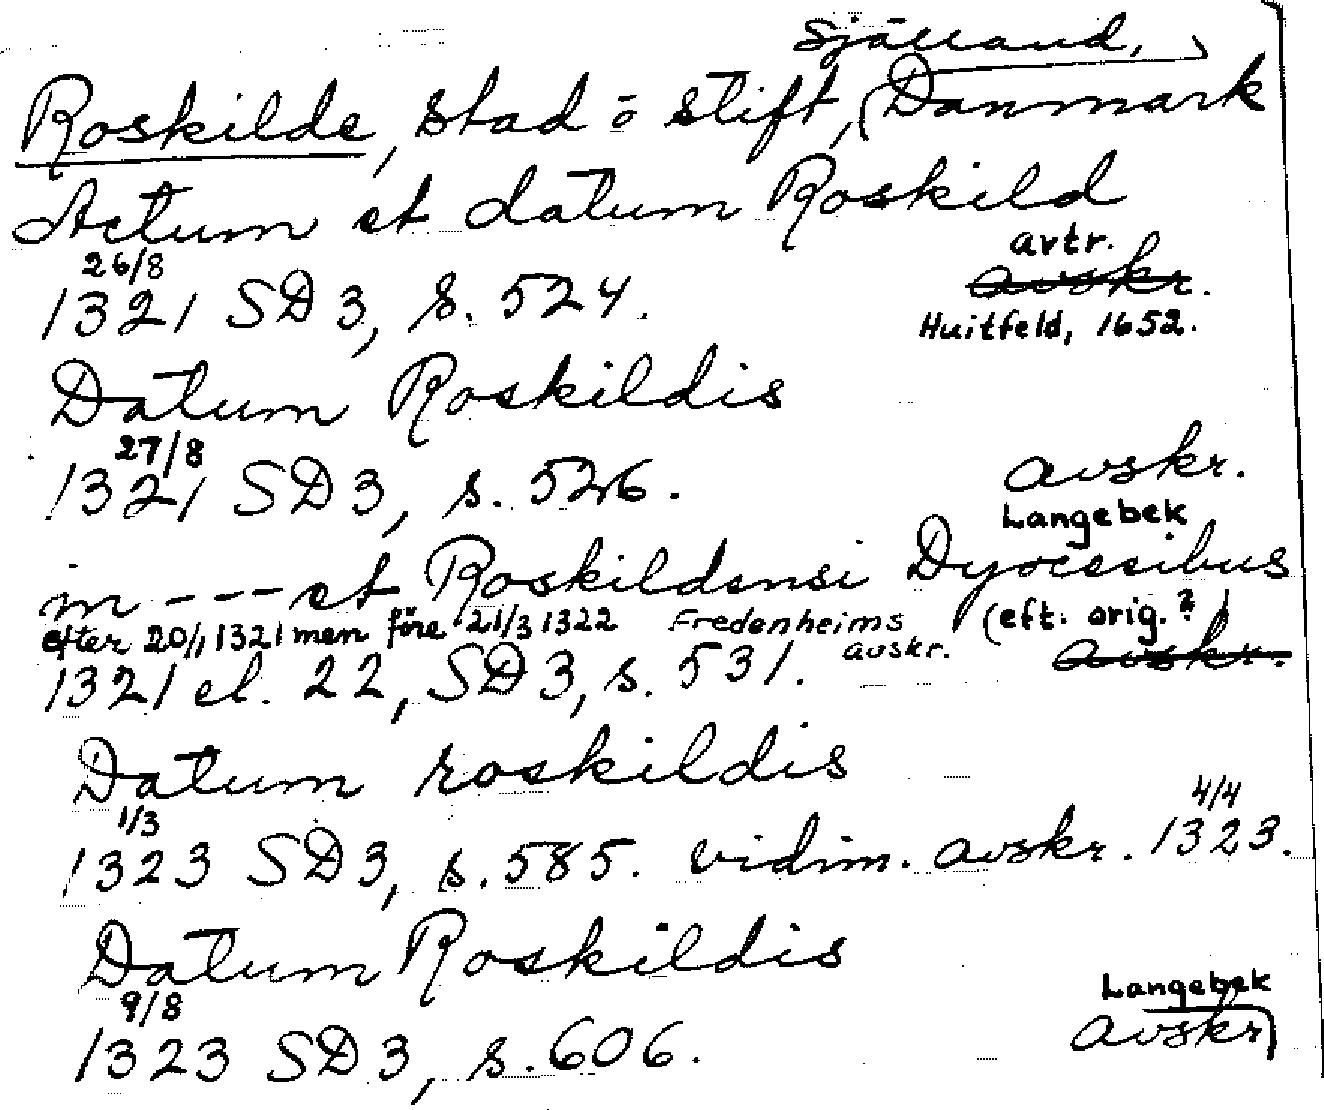 Själland,
Roskilde, stad o stift, (Danmark
Actum et datum Roskild
26/8 avtr.
1321 SD 3, s. 524. avskr.
Huitfeld, 1652.
Datum Roskildis
27/8
1321 SD 3, s. 526. avskr.
Langebek
in --- et Roskildensi Dyocesibus
efter 20/1 1321 men före 21/3 1322 Fredenheims (eft. orig.?)
avskr.
1321 el. 22, SD 3, s. 531. avskr.
Datum roskildis
1/3 4/4
1323 SD 3, s. 585. vidim. avskr. 1323.
Datum Roskildis
9/8 Langebek
1323 SD 3, s. 606. avskr